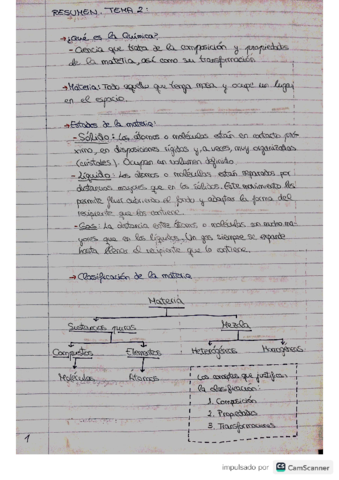 RESUMEN. TEMA 2:
→ ¿Qué es la Química?
- Ciencia que trata de la composición y propiedades
de la materia, así como su transformación
→ Materia: Todo aquello que tenga masa y ocupe un lugar
en el espacio.
→ Estados de la materia:
- Sólido: Los átomos o moléculas están en contacto pró-
ximo, en disposiciones rígidas y, a veces, muy organizadas
(cristales). Ocupan un volumen definido.
- Líquido: Los átomos o moléculas están separados por
distancias mayores que en los sólidos. Este movimiento les
permite fluir cubriendo el fondo y adaptar la forma del
recipiente que los contiene.
- Gas: La distancia entre átomos o moléculas son mucho ma-
yores que en los líquidos. Un gas siempre se expande
hasta llenar el recipiente que lo contiene.
→ Clasificación de la materia
Materia
Sustancias puras Mezcla
Compuestos Elementos Heterogéneas Homogéneas
Moléculas Átomos
Los conceptos que justifican
la clasificación:
1. Composición
2. Propiedades
3. Transformaciones
1
impulsado por CS CamScanner